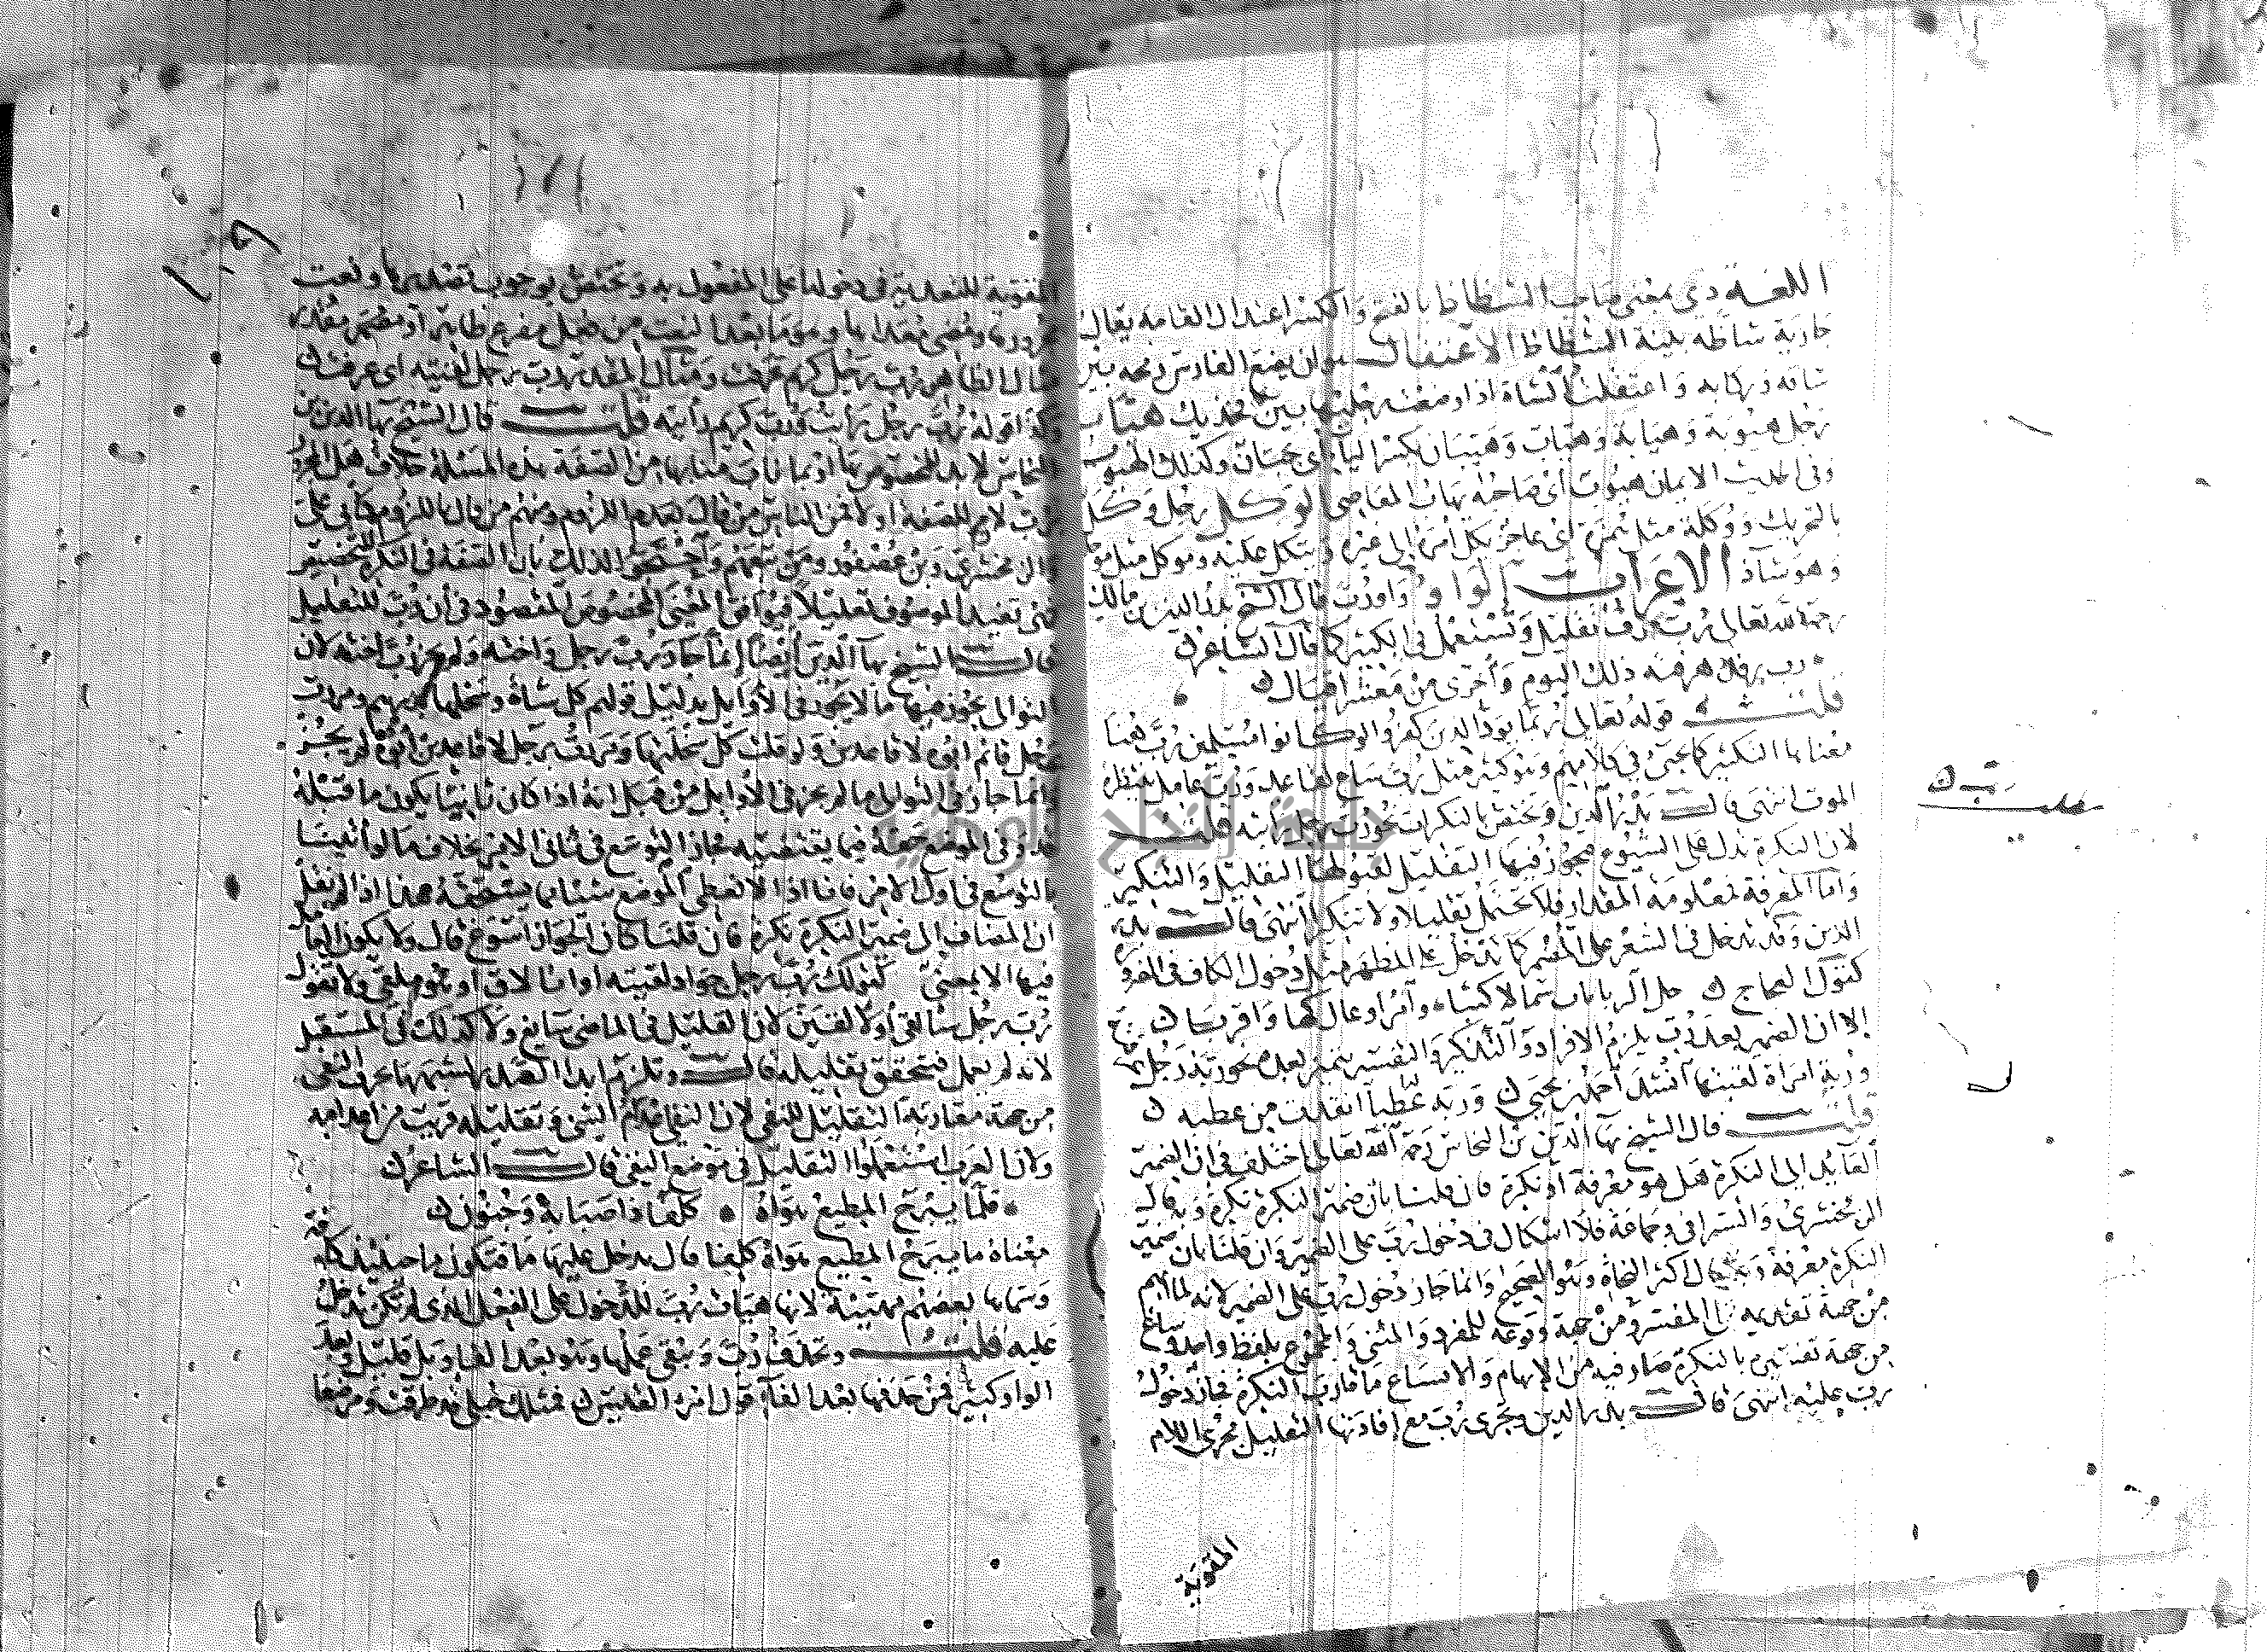 اللغة ذي بمعنى صاحب الشظاظ بالفتح والكسر اعتدال القامة يقال
جارية شاطه بينة الشظاظ الاعتقال هو ان يضع الفارس رمحه بين
ساقه وركابه واعتقلت الشاة اذا وضعت رجليها بين فخذيك هياب
رجل هيوبة وهيابة وهياب وهيبان بكسر الياء اي جبان وكذلك الهيوب
وفي الحديث الايمان هيوب اي صاحبه يهاب المعاصي الوكل رجل وكل
بالتحريك ووكلة مثل همزة اي عاجز يكل امره الى غيره ويتكل عليه
وهو شاذ الاعراب الواو واو رب قال الشيخ بدر الدين بن مالك
رحمه الله تعالى رب حرف تقليل وتستعمل في الكثير كما قال الشاعر
رب رفد هرقته ذلك اليوم واخرى من معشر اقتال
قلت قوله تعالى ربما يود الذين كفروا لو كانوا مسلمين رب هنا
معناها التكثير كما يجيء في كلامهم وهو كثير مثل رب ساع لقاعد ورب عامل ينتظره
الموت انتهى قال بدر الدين وتختص بالنكرات نحو رب رجل رايته قلت
لان النكرة تدل على الشيوع فيجوز فيها التقليل لقبولها التقليل والتكثير
واما المعرفة فمعلومة المقدار فلا تحتمل تقليلا ولا تكثيرا انتهى قال بدر
الدين وقد تدخل في الشعر على المضمر كما تدخل على المظهر مثل دخول الكاف في الضرورة
كقول العجاج خلى الذنابات شمالا كثبا وام اوعال كها او اقربا
الا ان الضمير بعد رب يلزم الافراد والتذكير والتفسير بتمييز بعده نحو ربه رجلا
وربه امراة لقيتها انشد احمد بن يحيى وربه عطبا انقذت من عطبه
قلت قال الشيخ بهاء الدين بن النحاس رحمه الله تعالى اختلف في ان الضمير
العايد الى النكرة هل هو معرفة او نكرة فان قلنا بان ضمير النكرة نكرة وبه قال
الزمخشري والسيرافي وجماعة فلا اشكال في دخول رب على الضمير وان قلنا بان ضمير
النكرة معرفة وبه قال اكثر النحاة وهو الصحيح وانما جاز دخول رب على الضمير لانه لما ابهم
من جهة تقديمه على المفسر ومن جهة وقوعه للمفرد والمثنى والمجموع بلفظ واحد وشاع
من جهة تفسيره بالنكرة صار فيه من الابهام والاتساع ما قارب النكرة فجاز دخول
رب عليه انتهى قال بدر الدين وتجرى رب مع افادتها التقليل مجرى اللام
المقوية
مطلب رب
١٠٩
المقوية للتعدية في دخولها على المفعول به وتختص بوجوب تصديرها ونعت
مجرورها ومضي معداها وهو ما بعد النعت من فعل مفرغ ظاهر او مضمر مقدر
مثال الظاهر رب رجل كريم عرفت ومثال المقدر رب رجل لقيته اي عرفت
وكذا قوله رب رجل رايت ورب كريم رايته قلت قال الشيخ بهاء الدين بن
النحاس لا بد لمخصوص رب او بما ناب منابها من الصفة بهذه المسئلة خلاف هل المجرور
برب لازم للصفة او لا فمن الناس من قال بعدم اللزوم ومنهم من قال باللزوم كابي علي
والزمخشري وبن عصفور ومن تبعهم واحتجوا لذلك بان الصفة في النكرة للتخصيص
فهي تفيد الموصوف تقليلا فيوافق المعنى المخصوص المقصود في ان رب للتقليل
قال الشيخ بهاء الدين ايضا انما جاز رب رجل واخيه ولم يجز رب اخيه لان
الثواني يجوز فيها ما لا يجوز في الاوايل بدليل قولهم كل شاة وسخلتها بدرهم ومررت
برجل قائم ابوه لا قاعدين ولو قلت كل سخلتها ومررت برجل لا قاعدين ابوه لم يجز
وانما جاز في الثواني ما لم يجز في الاوايل من قبل انه اذا كان ثانيا يكون ما قبله
قد وفى الموضع حقه فيما يقتضيه فجاز التوسع في ثاني الامر بخلاف ما لو اتينا
بالتوسع في اول الامر فانا اذا لا نعطي الموضع شيئا مما يستحقه هذا اذا لم نقل
ان المضاف الى ضمير النكرة نكرة فان قلنا كان الجواز اسوغ قال ولا يكون العامل
فيها الا بمعنى كقولك رب رجل جواد لقيته او انا لاق او هو ملقى ولا تقول
رب رجل سالقى او لالقين لان التقليل في الماضي سايغ ولا كذلك في المستقبل
لانه لم يعمل فيتحقق تقليله قال وتلزم ابدا الصدر لشبهها بحرف النفي
من جهة مقاربة التقليل للنفي لان النفي عدم الشيء وتقليله قريب من اعدامه
ولان العرب استعملوا التقليل في موضع النفي قال الشاعر
قلما يبرح المطيع هواه كلفا ذا صبابة وجنون
معناه ما يبرح المطيع هواه كلفا قال تدخل عليها ما فتكون ما حينئذ كافة
وسماها بعضهم مهيئة لانها هيات رب للدخول على الفعل الذي لم تكن تدخل
عليه قلت وتحذف رب ويبقى عملها وهو بعد الفاء وبل قليل وبعد
الواو كثير فمن حذفها بعد الفاء قول امرئ القيس فمثلك حبلى قد طرقت ومرضعا